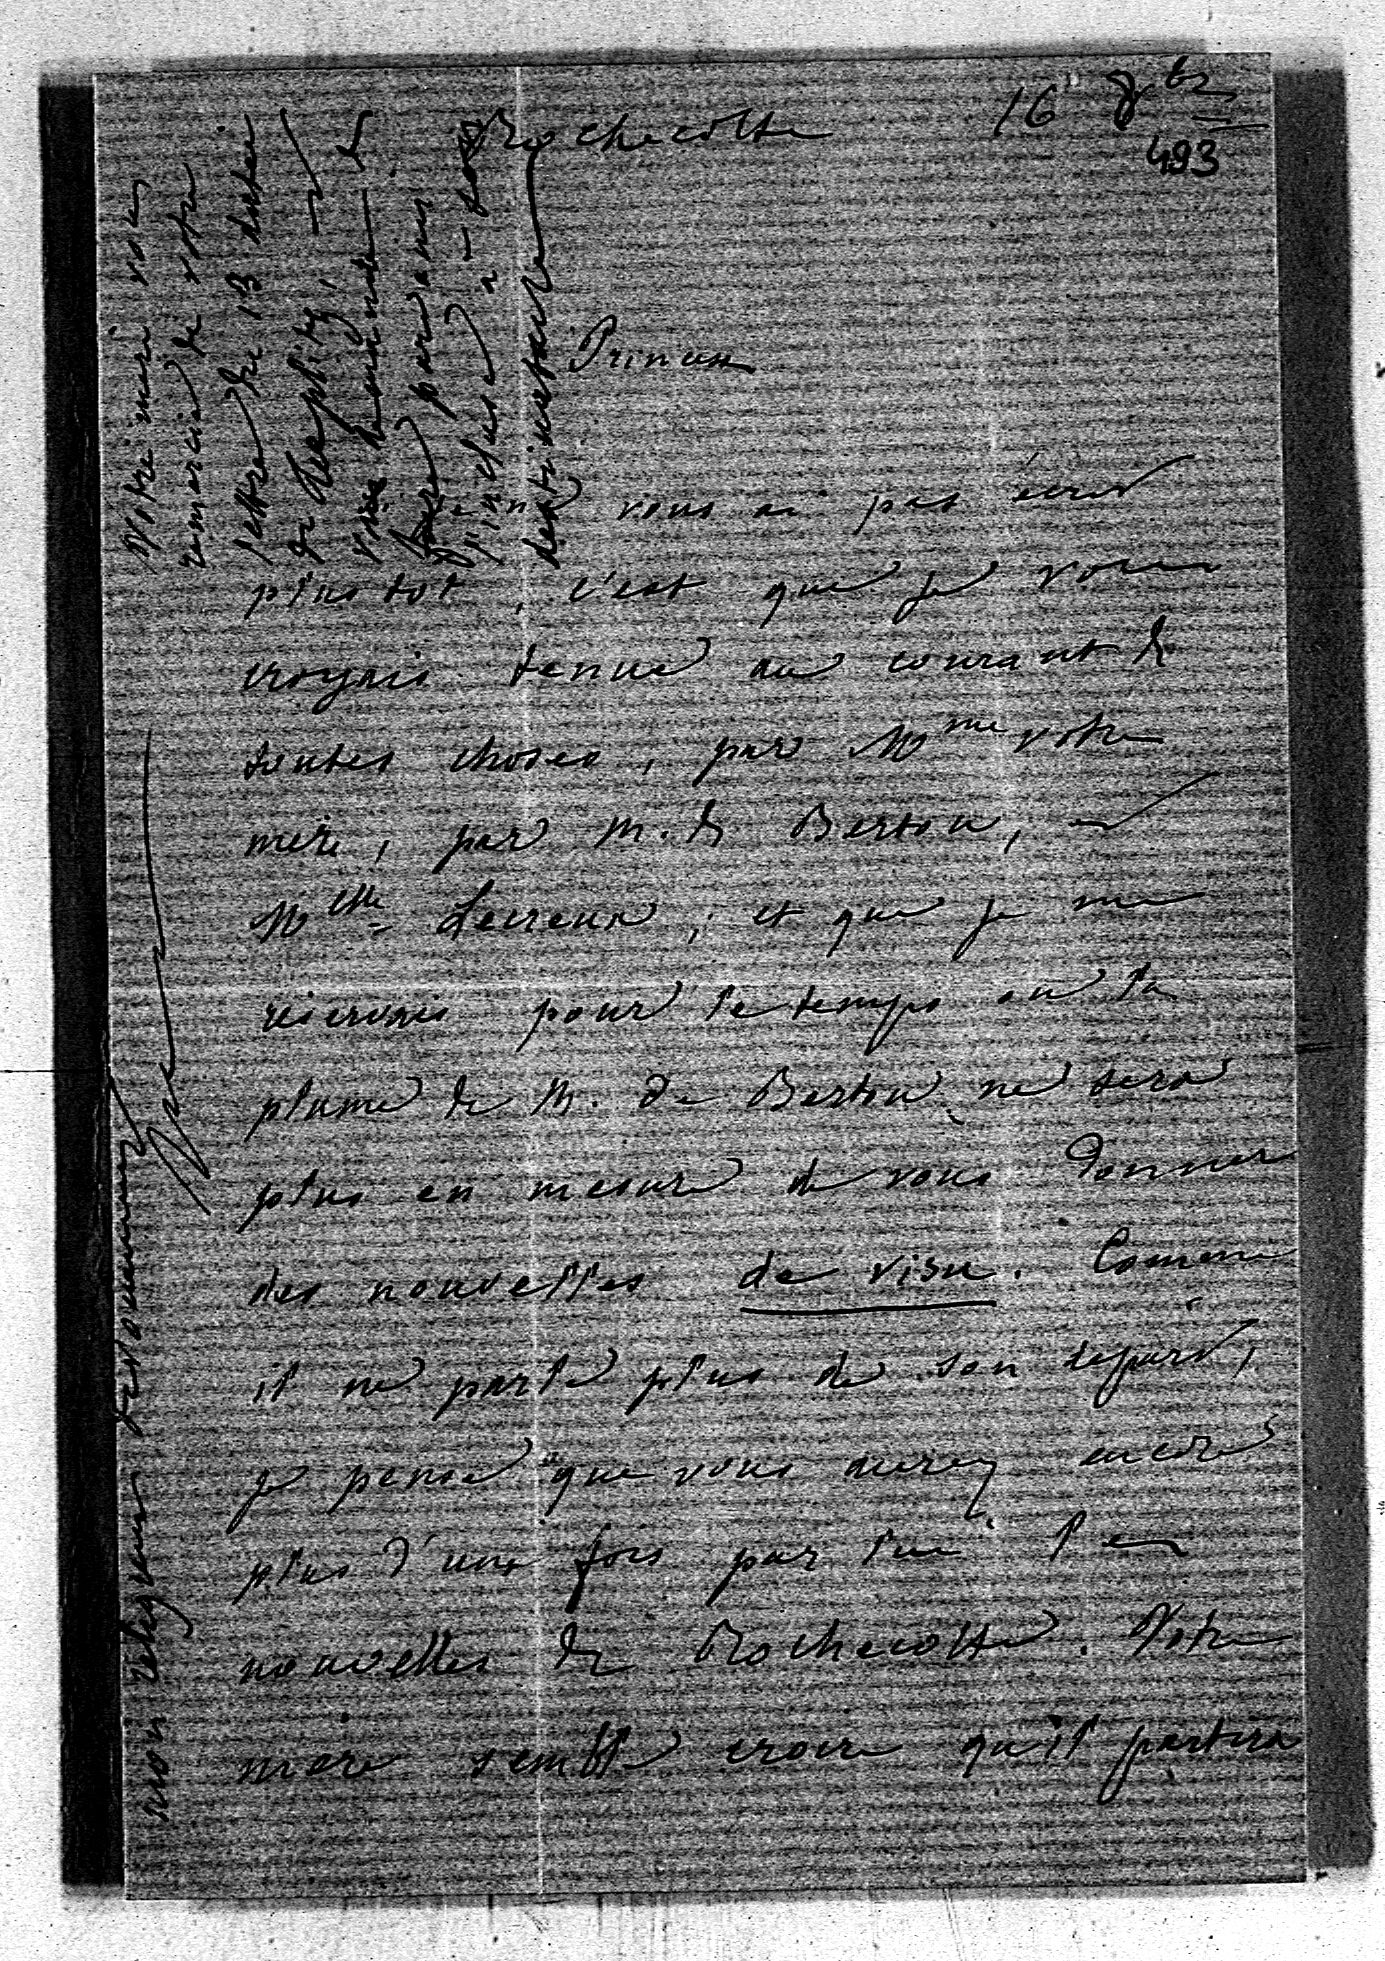 Rochecotte 16 8bre
493
Princesse
ne vous ai pas écrit
plus tôt, c'est que je vous
croyais tenue au courant de
toutes choses, par Mme votre
mère, par M. de Bertou, et
Melle Lecreux; et que je me
réservais pour le temps où la
plume de M. de Bertou ne sera
plus en mesure de vous donner
des nouvelles de visu. Comme
il ne parle plus de son départ,
je pense que vous aurez encore
plus d'une fois par lui des
nouvelles de Rochecotte. Votre
mère semble croire qu'il partira
Votre mère vous
remercie de votre
lettre du 13 datée
de Teeplitz, et
vous demande de
faire parvenir
l'incluse à son
destinataire
mon